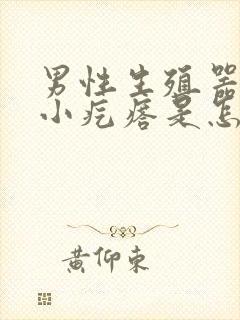 男性生殖器
小疙瘩是怎
黄仰东